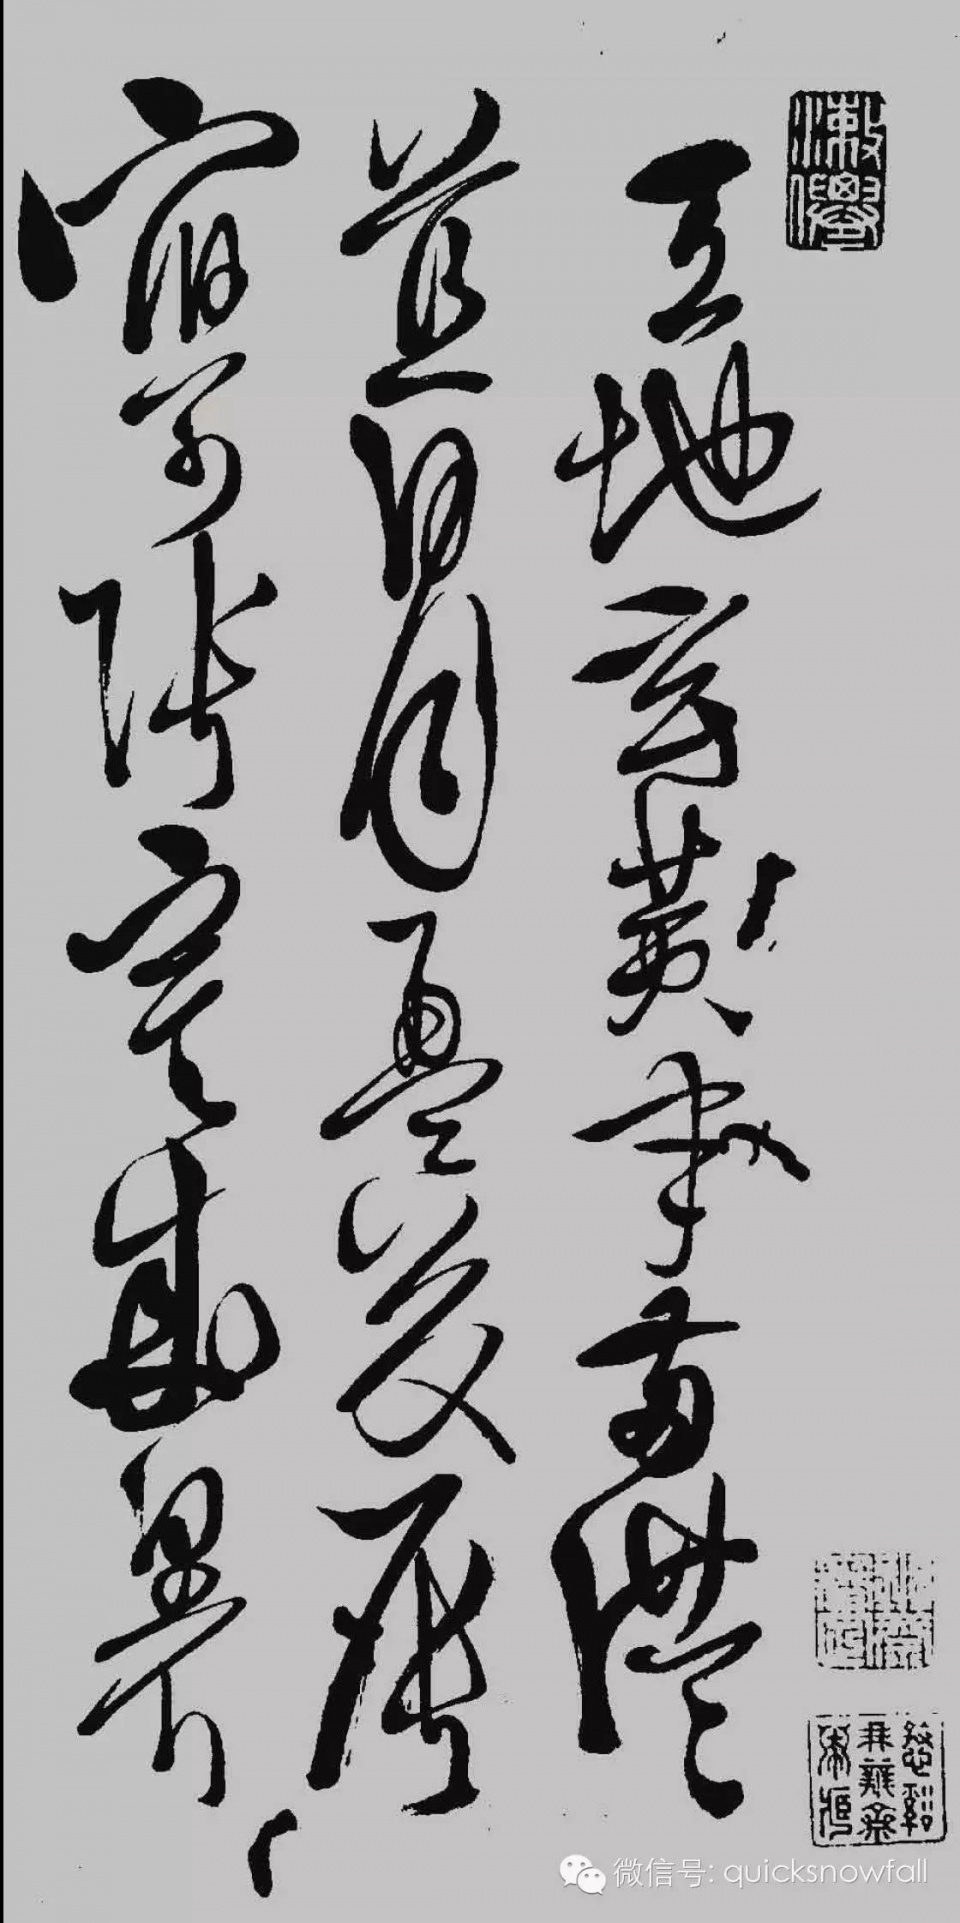 天地玄黄宇宙洪
荒日月盈昃辰
宿列張寒来暑
微信号: quicksnowfall